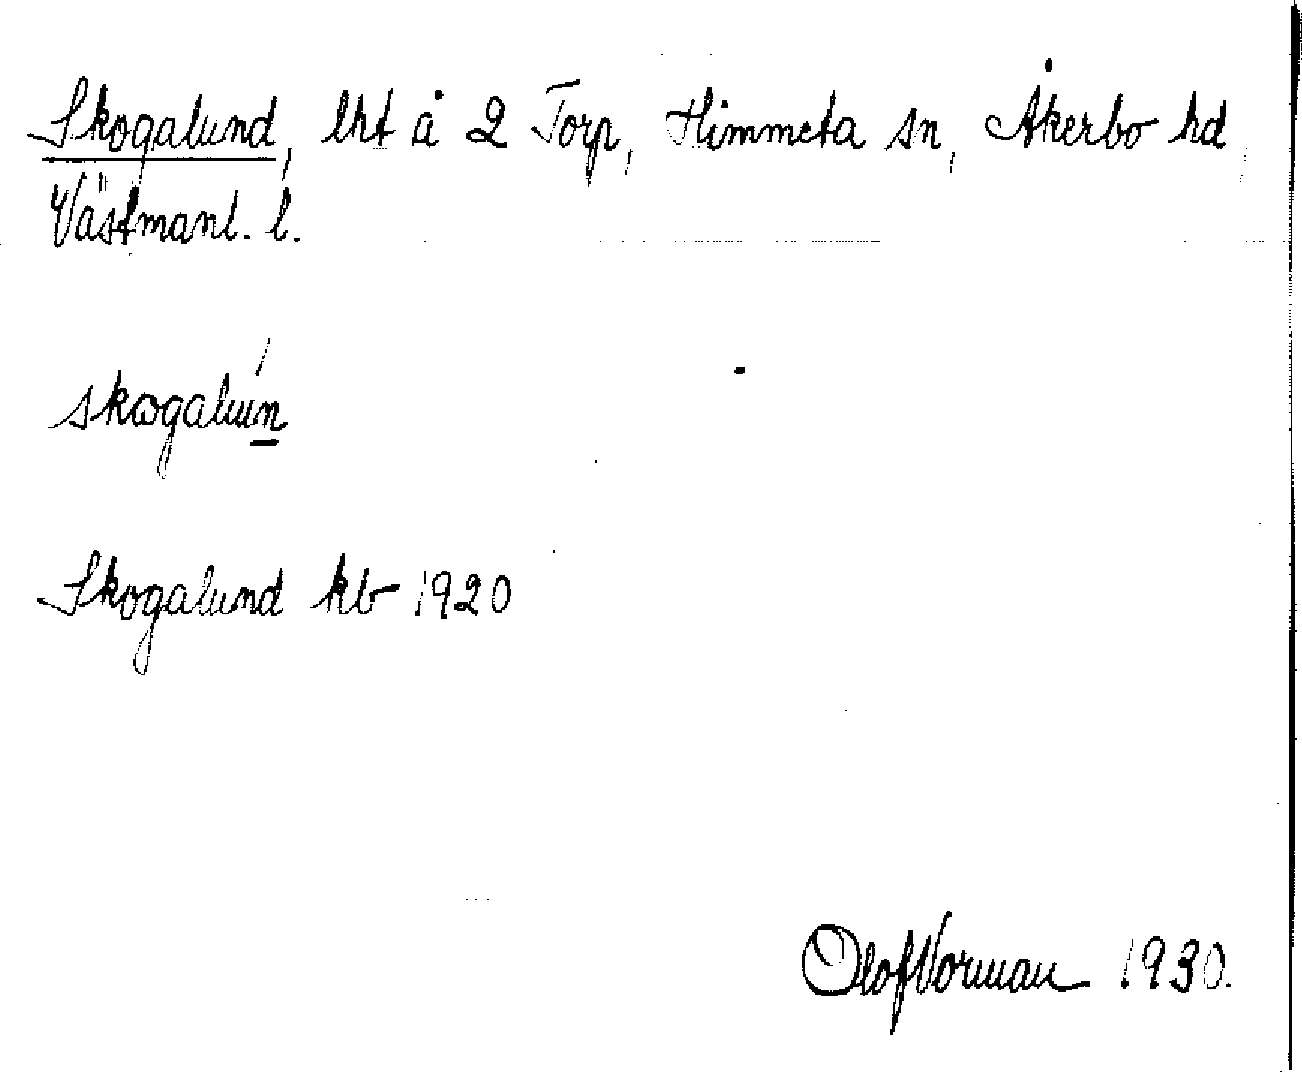 Skogalund, lht å 2 Torp, Himmeta sn, Åkerbo hd,
Västmanl. l.
skogalun
Skogalund kb 1920
Olof Norman 1930.